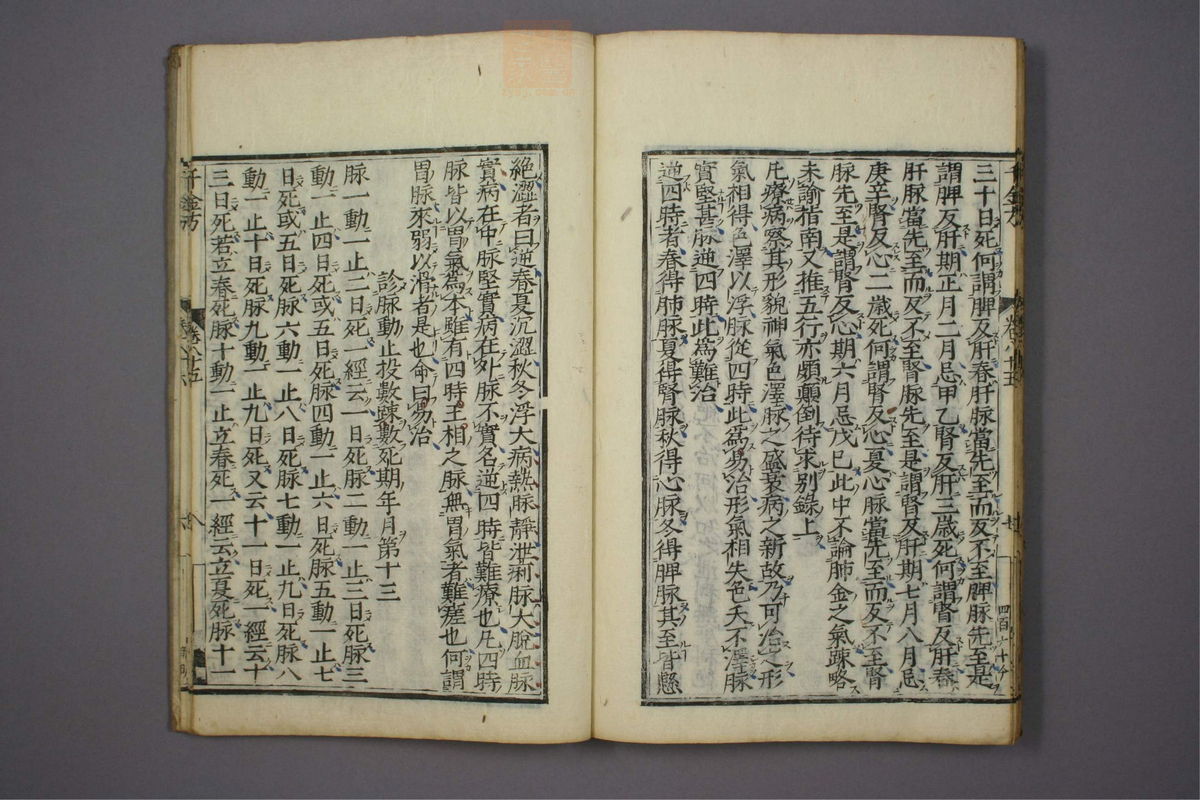 三十日死何謂脾反肝春肝脉當先至而反不至脾脉先至是
謂脾反肝期正月二月忌甲乙腎反肝三歲死何謂腎反肝春
肝脉當先至而反不至腎脉先至是謂腎反肝期七月八月忌
庚辛腎反心二歲死何謂腎反心夏心脉當先至而反不至腎
脉先至是謂腎反心期六月忌戊巳此中不論肺金之氣踈略
未諭指南又推五行亦頗顛倒待求別錄上
凡療病察其形貌神氣色澤脉之盛衰病之新故乃可治之形
氣相得色澤以浮脉從四時此爲易治形氣相失色夭不澤脉
實堅甚脉逆四時此爲難治
逆四時者春得肺脉夏得腎脉秋得心脉冬得脾脉其至皆懸
絶澀者曰逆春夏沉澀秋冬浮大病熱脉靜泄痢脉大脫血脉
實病在中脉堅實病在外脉不實名逆四時皆難療也凡四時
脉皆以胃氣爲本雖有四時王相之脉無胃氣者難瘥也何謂
胃脉來弱以滑者是也命曰易治
診脉動止投數踈數死期年月第十三
脉一動一止二日死一經云一日死脉二動一止三日死脉三
動一止四日死或五日死脉四動一止六日死脉五動一止七
日死或五日死脉六動一止八日死脉七動一止九日死脉八
動一止十日死脉九動一止九日死又云十一日死一經云十
三日死若立春死脉十動一止立春死一經云立夏死脉十一
千金方